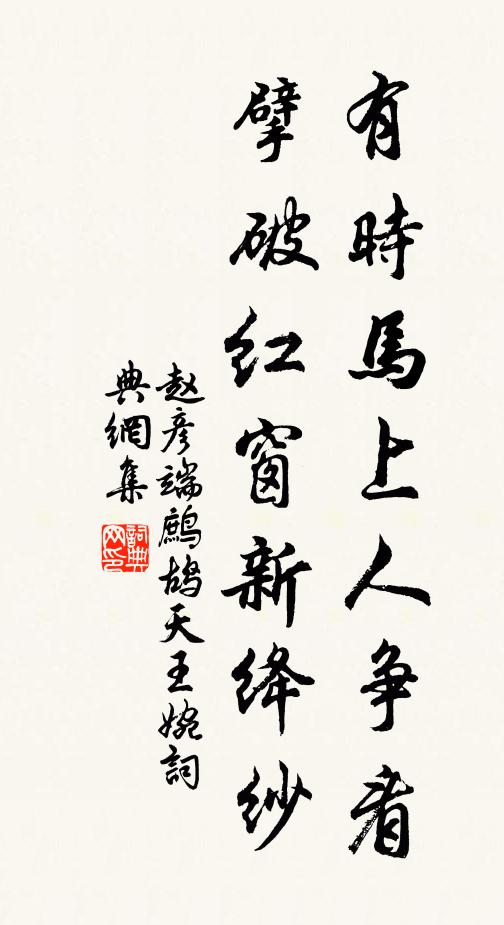 有時馬上人爭看
擘破紅窗新絳紗
趙彥端鷓鴣天王婉詞
典網集
詞典網印